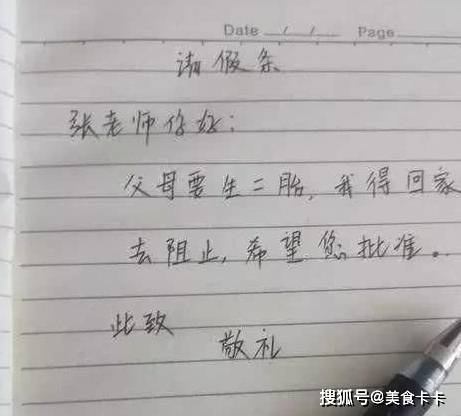 Date / / Page
请假条
张老师你好:
父母要生二胎,我得回家
去阻止,希望您批准。
此致
敬礼
搜狐号@美食卡卡